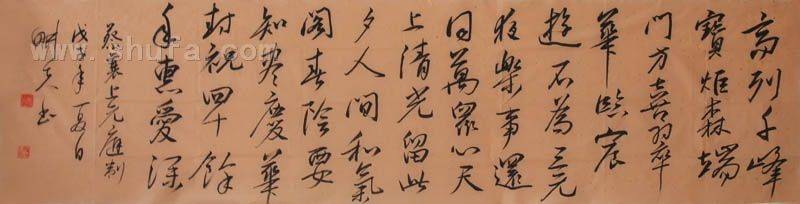 高列千峰
寶炬森端
門方喜翠
華臨宸
遊不為三元
夜樂事還
同萬眾心天
上清光留此
夕人間和氣
閣春陰要
知盡慶華
封祝四十餘
年惠愛深
蔡襄上元應制
戊子年夏日
书